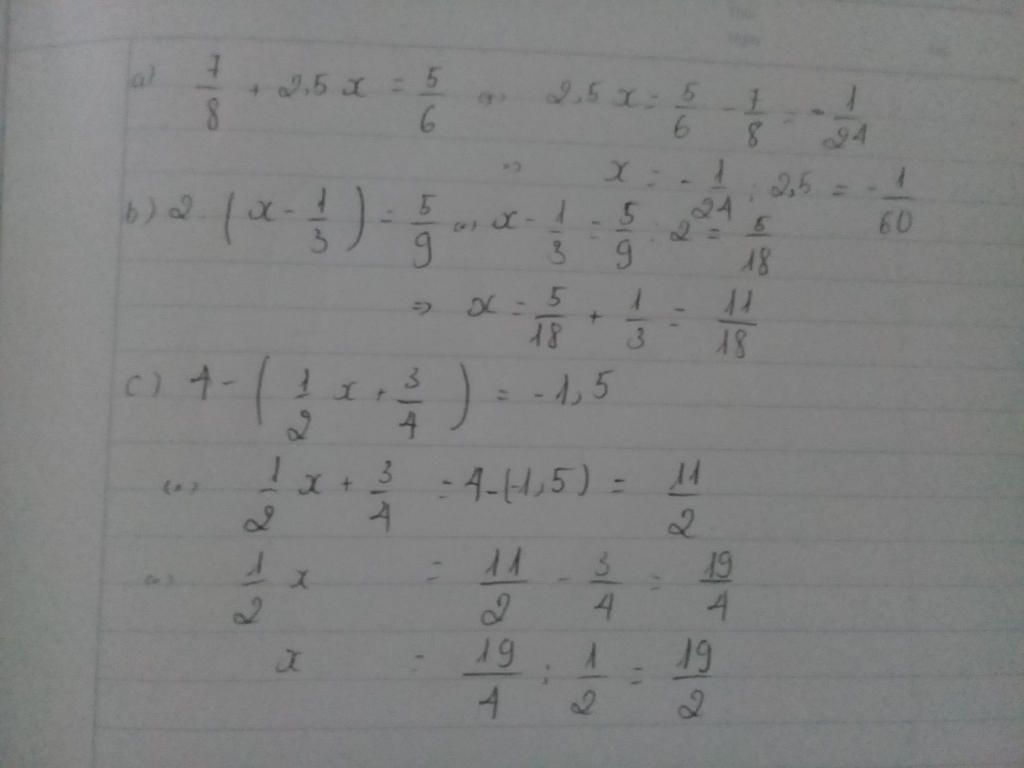 a) 7/8 + 2,5 x = 5/6 <=> 2,5 x = 5/6 - 7/8 = - 1/24
=> x = - 1/24 : 2,5 = - 1/60
b) 2 . ( x - 1/3 ) = 5/9 <=> x - 1/3 = 5/9 : 2 = 5/18
=> x = 5/18 + 1/3 = 11/18
c) 4 - ( 1/2 x + 3/4 ) = - 1,5
<=> 1/2 x + 3/4 = 4 - (-1,5) = 11/2
<=> 1/2 x = 11/2 - 3/4 = 19/4
x = 19/4 : 1/2 = 19/2